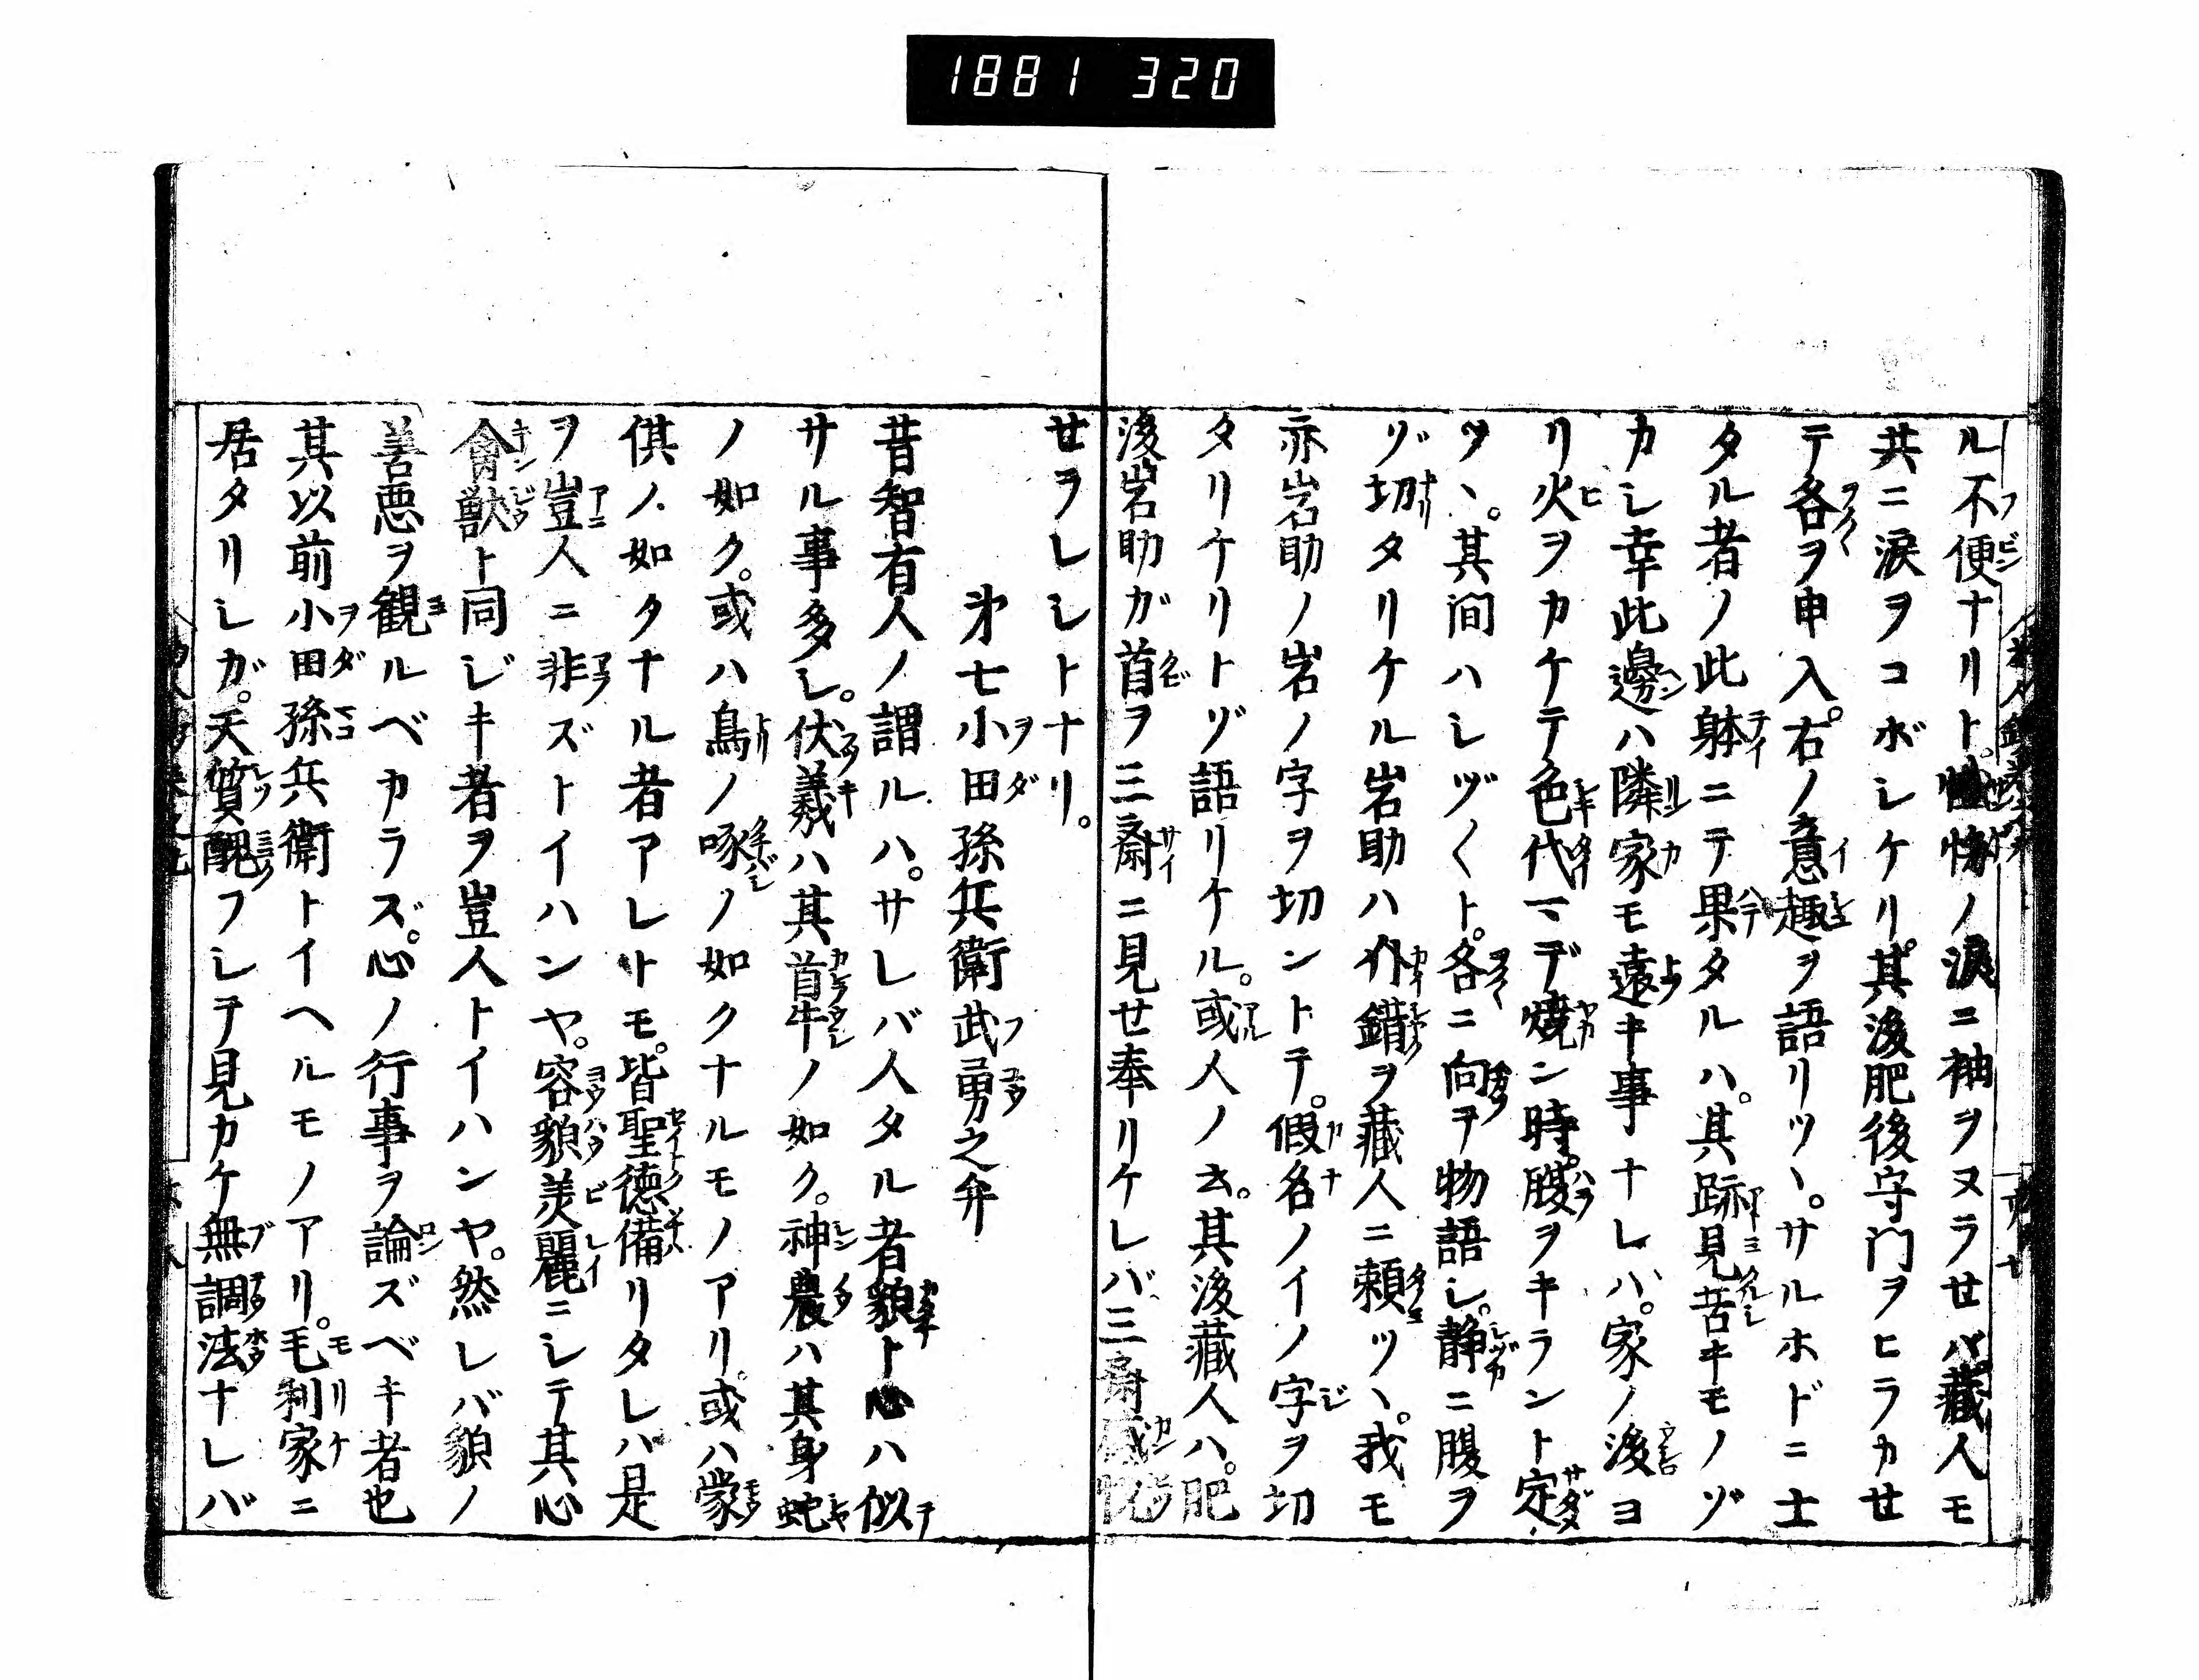 1881 320
ル不便ナリト。ノ涙ニ袖ヲヌラせバ藏人モ
共ニ涙ヲコボシケリ。其後肥後守門ヲヒラカせ
テ各ヲ申入。右ノ意趣ヲ語リツヽ。サルホドニ士
タル者ノ此躰ニテ果タルハ。其跡見苦キモノゾ
カシ幸此邊ハ隣家モ遠キ事ナレバ。家ノ後ヨ
リ火ヲカケテ色代マデ焼ン時。腹ヲキラント定
ツヽ。其間ハシヅ〱ト。各ニ向ヲ物語シ。静ニ腹ヲ
ゾ切タリケル岩助ハ介錯ヲ藏人ニ頼ツヽ。我モ
亦岩助ノ岩ノ字ヲ切ントテ。假名ノイノ字ヲ切
タリケリトゾ語リケル。或人ノ云。其後藏人ハ。肥
後岩助ガ首ヲ三齋ニ見せ奉リケレバ三齋感悦
せヲレシトナリ。
㐧七小田孫兵衛武勇之弁
昔智有人ノ謂ルハ。サレバ人タル者貌ト心ハ似
サル事多シ。伏羲ハ其首牛ノ如ク。神農ハ其身蛇
ノ如ク。或ハ鳥ノ啄ノ如クナルモノアリ。或ハ蒙
倛ノ如クナル者アレトモ。皆聖徳備リタレバ是
ヲ豈人ニ非ズトイハンヤ。容貌美麗ニシテ其心
禽獣ト同ジキ者ヲ豈人トイハンヤ。然レバ貌ノ
善悪ヲ観ルベカラズ。心ノ行事ヲ論ズベキ者也
其以前小田孫兵衛トイヘルモノアリ。毛利家ニ
居タリシガ。天質醜フシテ見カケ無調法ナレバ